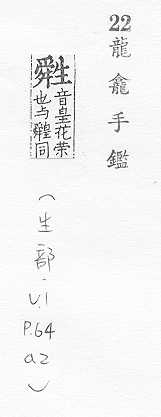 22 龍龕手鑑
音皇花荣
也与䑟同
(生部-V.1 P.64 a.2)